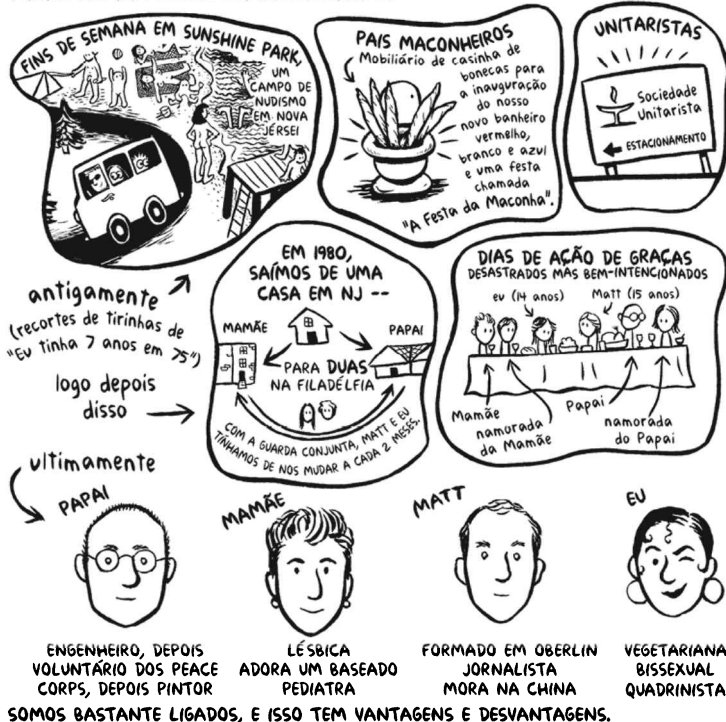 FINS DE SEMANA EM SUNSHINE PARK,
UM
CAMPO DE
NUDISMO
EM NOVA
JÉRSEI
PAIS MACONHEIROS
Mobiliário de casinha de
bonecas para
a inauguração
do nosso
novo banheiro
vermelho,
branco e azul
e uma festa
chamada
"A Festa da Maconha".
UNITARISTAS
Sociedade
Unitarista
ESTACIONAMENTO
antigamente
(recortes de tirinhas de
"Eu tinha 7 anos em 75")
logo depois
disso
EM 1980,
SAÍMOS DE UMA
CASA EM NJ --
MAMÃE
PAPAI
PARA DUAS
NA FILADÉLFIA
COM A GUARDA CONJUNTA, MATT E EU
TÍNHAMOS DE NOS MUDAR A CADA 2 MESES.
DIAS DE AÇÃO DE GRAÇAS
DESASTRADOS MAS BEM-INTENCIONADOS
eu (14 anos)
Matt (15 anos)
Mamãe
namorada
da Mamãe
Papai
namorada
do Papai
ultimamente
PAPAI
MAMÃE
MATT
EU
ENGENHEIRO, DEPOIS
VOLUNTÁRIO DOS PEACE
CORPS, DEPOIS PINTOR
LÉSBICA
ADORA UM BASEADO
PEDIATRA
FORMADO EM OBERLIN
JORNALISTA
MORA NA CHINA
VEGETARIANA
BISSEXUAL
QUADRINISTA
SOMOS BASTANTE LIGADOS, E ISSO TEM VANTAGENS E DESVANTAGENS.